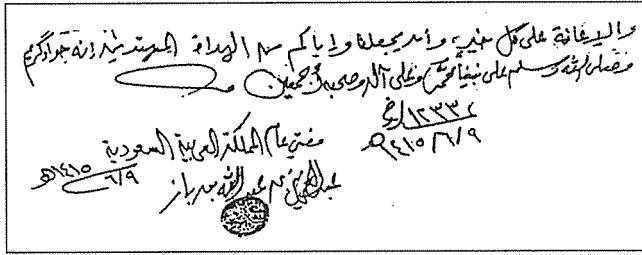 والإعانة على كل خير، وأن يجعلنا وإياكم من الهداة المهتدين إنه جواد كريم
وصلى الله وسلم على نبينا محمد وعلى آله وصحبه أجمعين
١٢٣٣٢/خ
١٤١٠/٦/٩هـ
مفتي عام المملكة العربية السعودية
٦/٩ ١٤١٥هـ
عبدالعزيز بن عبدالله بن باز